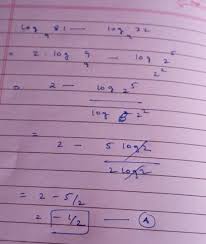 log₉ 81 — log₄ 32
= 2 · log₉ 9 — log_{2²} 2⁵
= 2 — log 2⁵ / log 2²
= 2 — 5 log 2 / 2 log 2
= 2 - 5/2
= - 1/2 — (A)